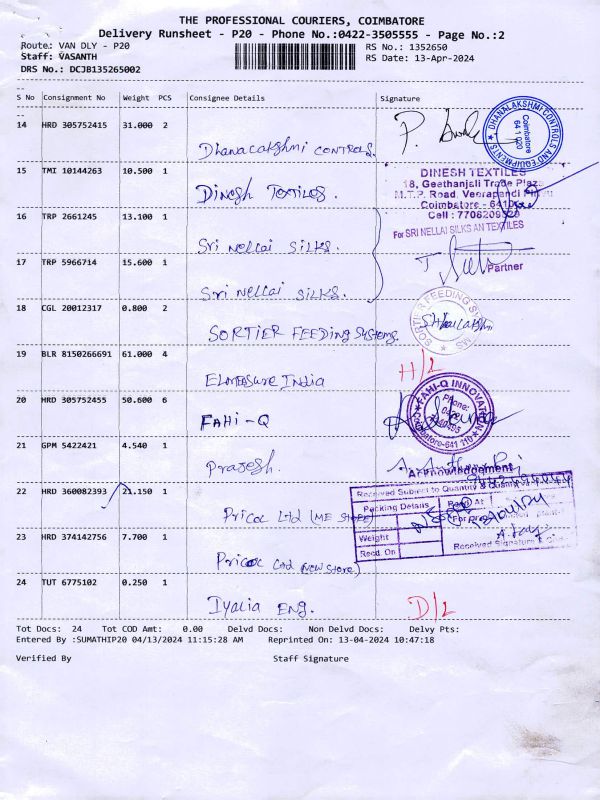 THE PROFESSIONAL COURIERS, COIMBATORE
Delivery Runsheet - P20 - Phone No.:0422-3505555 - Page No.:2
Route: VAN DLY - P20
RS No.: 1352650
Staff: VASANTH
RS Date: 13-Apr-2024
DRS No.: DCJB135265002
S No Consignment No Weight PCS Consignee Details Signature
14 HRD 305752415 31.000 2
Dhanalakshmi CONTROLS.
DHANALAKSHMI CONTROLS AND EQUIPMENTS
Coimbatore
641 020
15 TMI 10144263 10.500 1
Dinesh Textiles.
DINESH TEXTILES
18, Geethanjali Trade Plaza
M.T.P. Road, Veerapandi
Coimbatore - 641
Cell :
16 TRP 2661245 13.100 1
Sri Nellai SILKS.
For SRI NELLAI SILKS AN TEXTILES
Partner
17 TRP 5966714 15.600 1
Sri Nellai SILKS.
18 CGL 20012317 0.800 2
SORTIER FEEDING Systems.
SORTIER FEEDING SYSTEMS
19 BLR 8150266691 61.000 4
ELMEASURE India
H/2
20 HRD 305752455 50.600 6
FAHI-Q
FAHI-Q INNOVATION
Phone:
Coimbatore-641 110
21 GPM 5422421 4.540 1
Prajesh.
Acknowledgement
22 HRD 360082393 21.150 1
Pricol Ltd (ME STORE)
Received Subject to Quantity &
Packing Details
Weight
Recd. On
Received Signature &
23 HRD 374142756 7.700 1
Pricol Ltd (New Store)
24 TUT 6775102 0.250 1
Iyalia ENG.
D/2
Tot Docs: 24 Tot COD Amt: 0.00 Delvd Docs: Non Delvd Docs: Delvy Pts:
Entered By :SUMATHIP20 04/13/2024 11:15:28 AM Reprinted On: 13-04-2024 10:47:18
Verified By Staff Signature